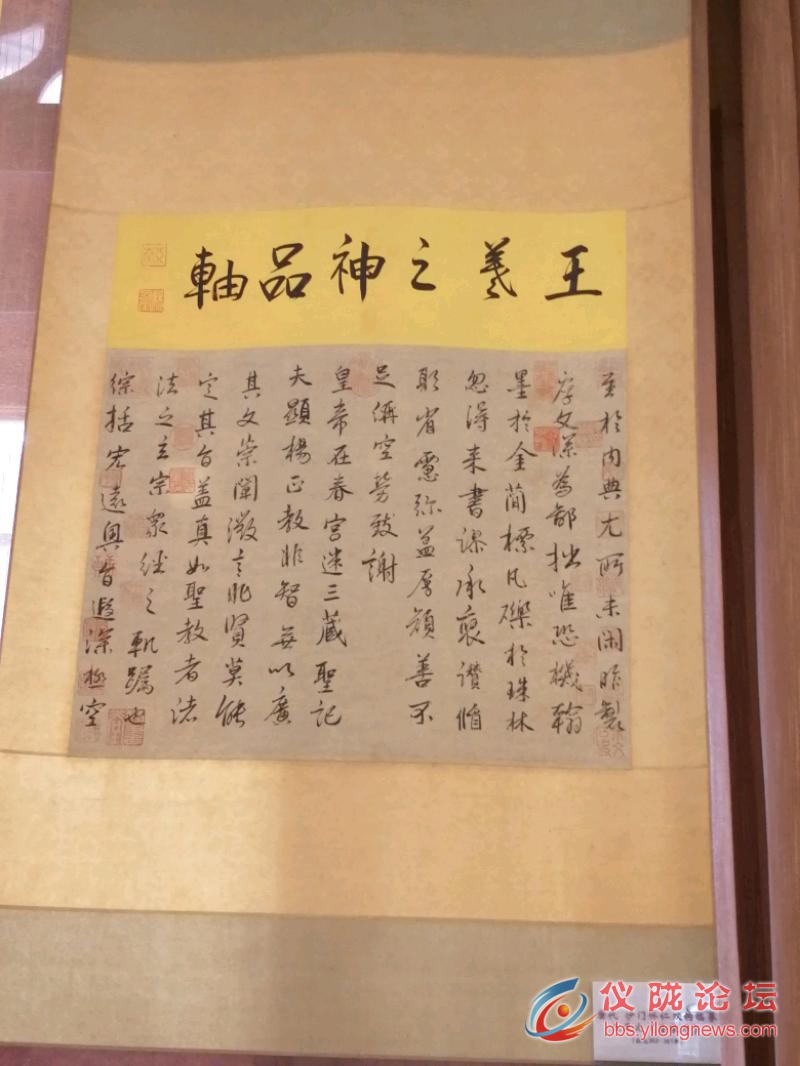 王羲之神品軸
至於內典尤所未閑昨製
序文深為鄙拙唯恐穢翰
墨於金簡標瓦礫於珠林
忽得来書謬承褒讚循
躬省慮弥益厚顏善不
足稱空勞致謝
皇帝在春宮述三藏聖記
夫顯揚正教非智無以廣
其文崇闡微言非賢莫能
定其旨蓋真如聖教者諸
法之玄宗眾經之軌躅也
綜括宏遠奧旨遐深極空
仪陇论坛
bbs.yilongnews.com